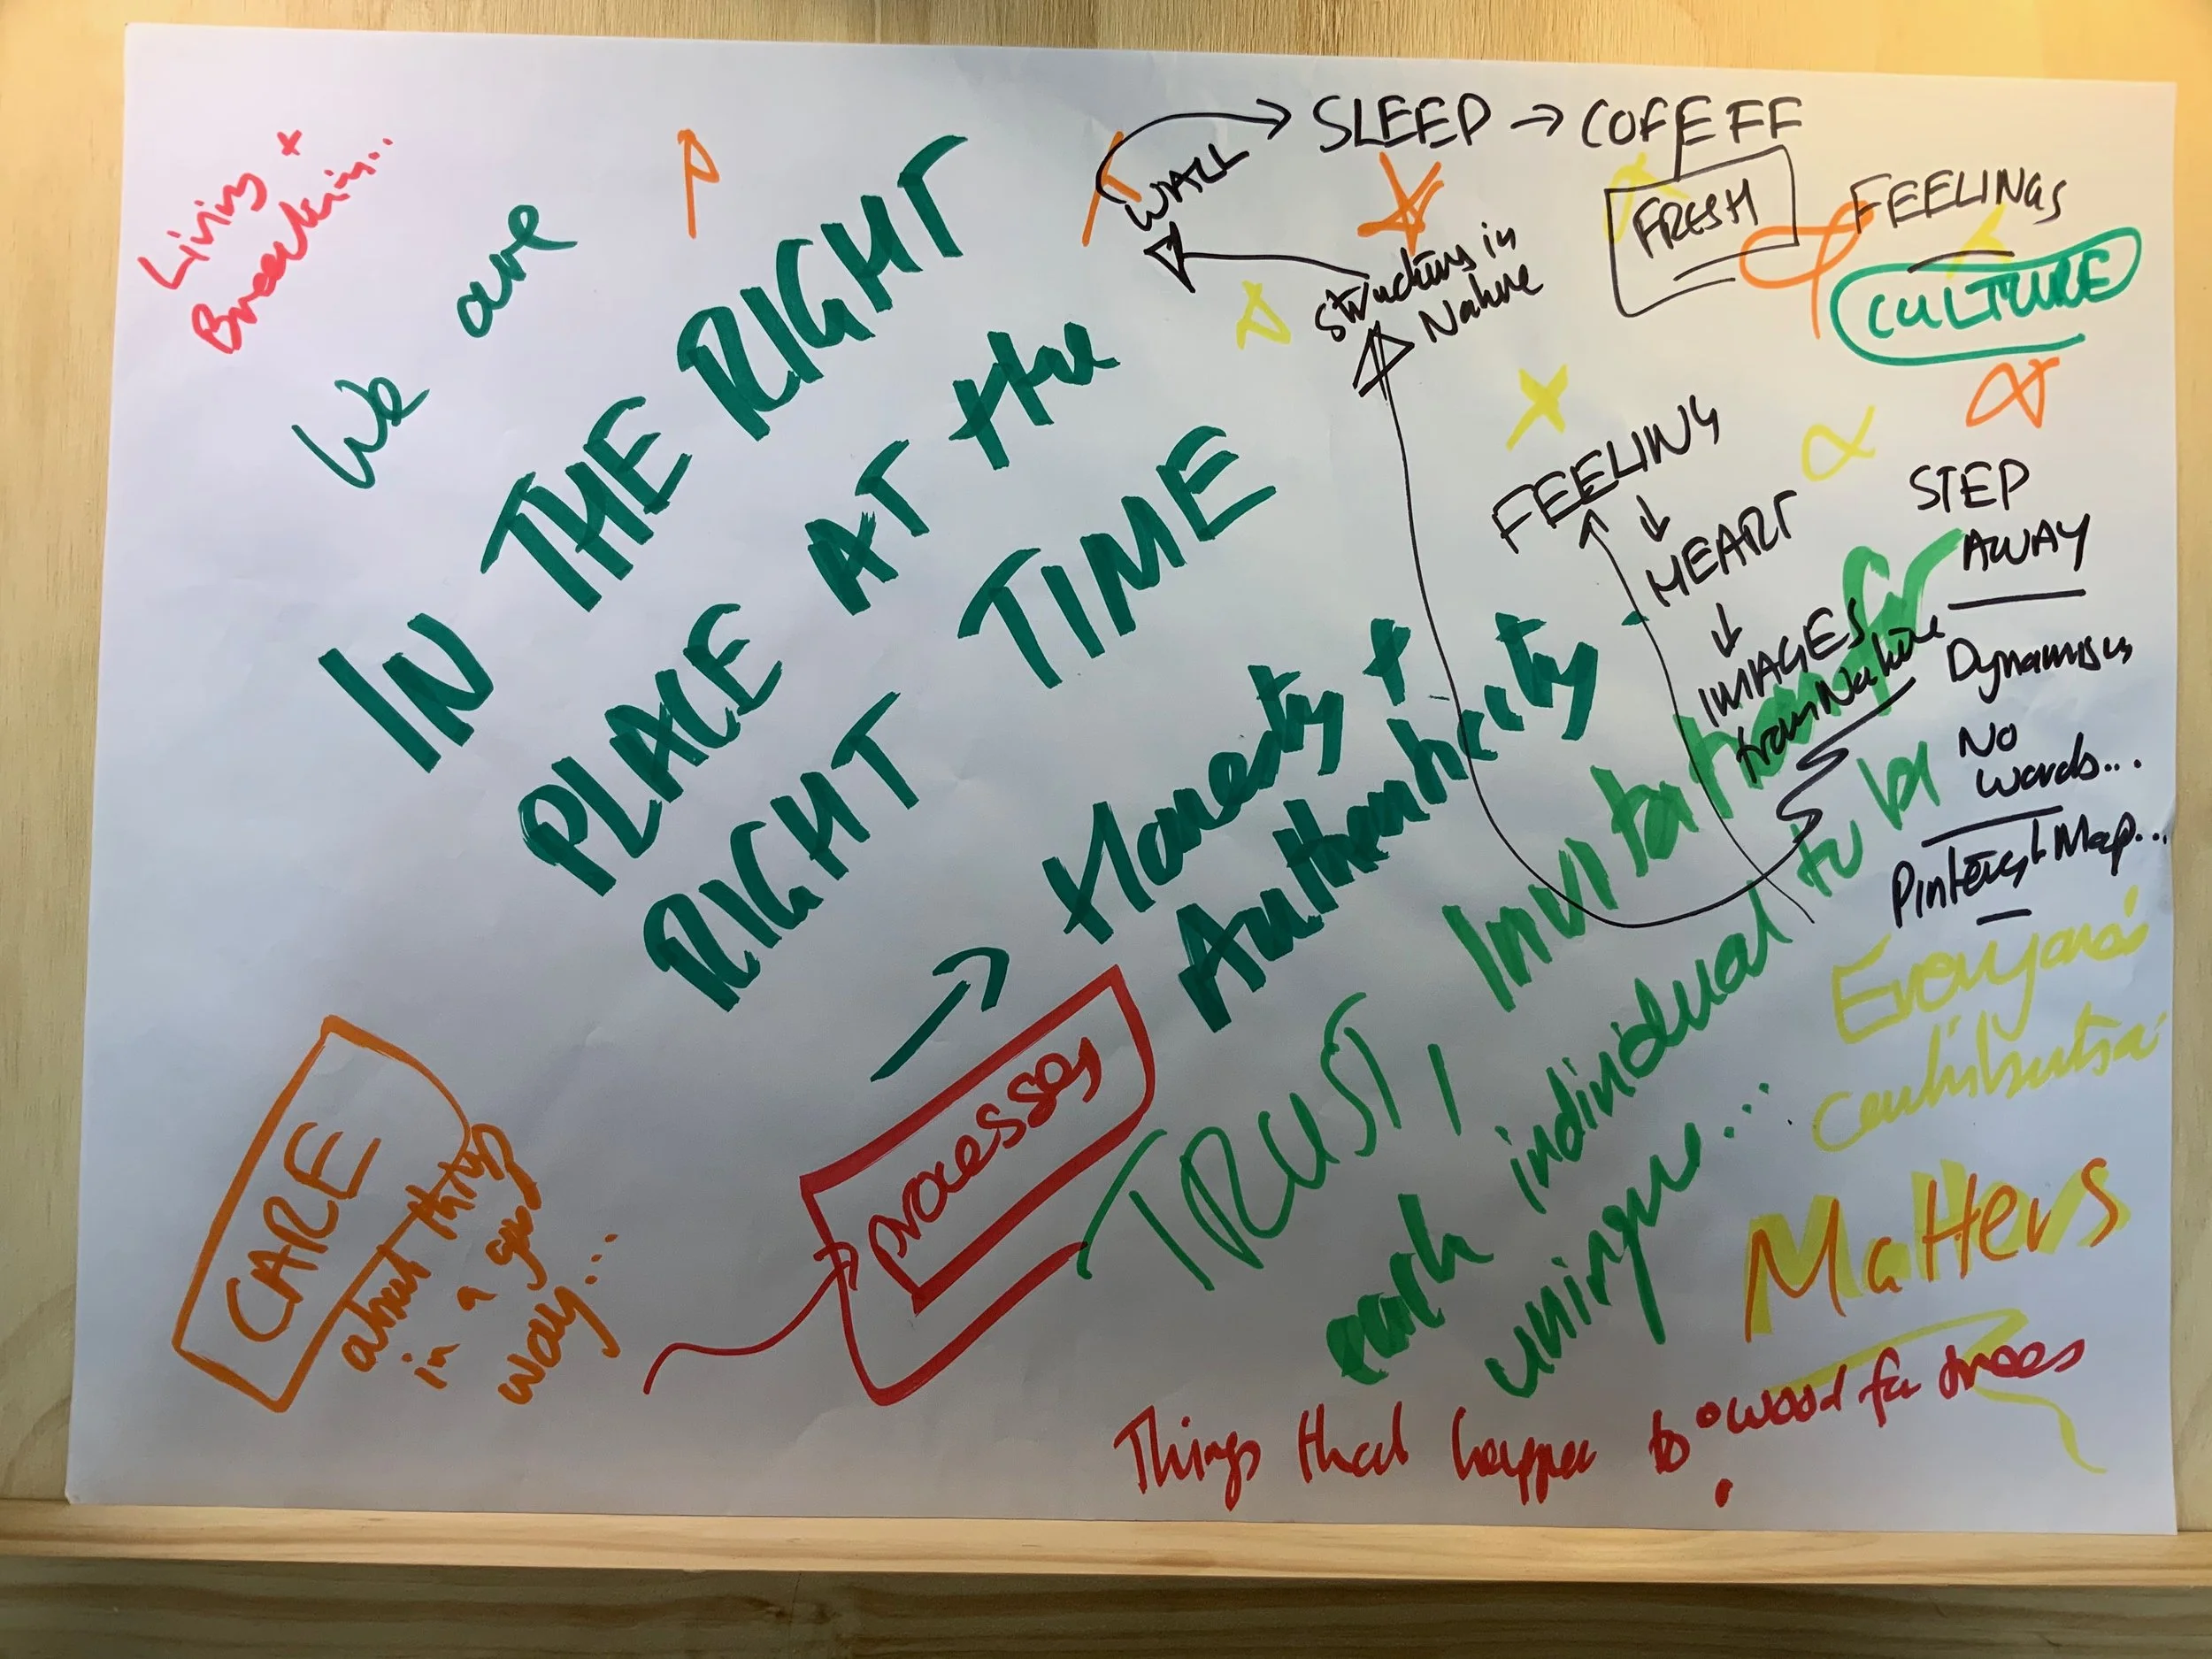 Living +
Breathing...
We are
IN THE RIGHT
PLACE AT the
RIGHT TIME
→ Honesty +
Authenticity -
TRUST, Invitation for
each individual to be
unique...
processes
CARE
about things
in a good
way...
WALL → SLEEP → COFEFE
FRESH
FEELINGS
CULTURE
Structures in
Nature
FEELING
↓
HEART
↓
IMAGES
from Nature
STEP
AWAY
Dynamism
No
words...
Pinterest Map...
Everyone's
contribution
Matters
Things that happen to
wood for trees